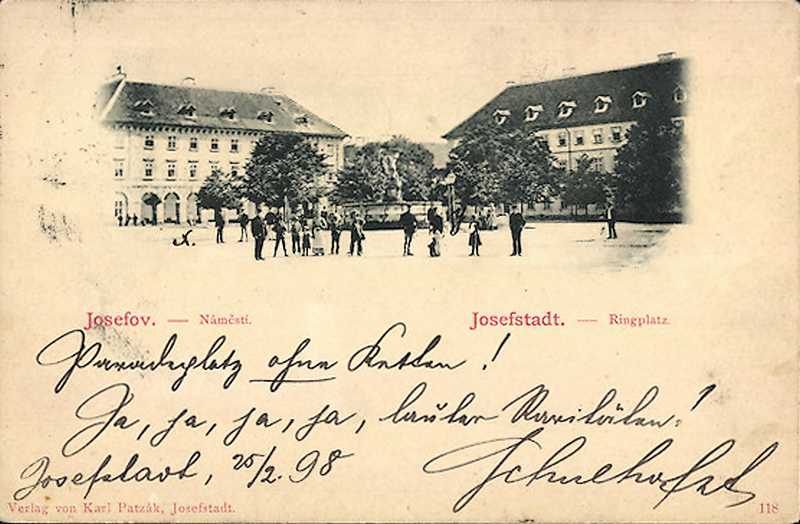 Josefov. — Náměstí. Josefstadt. — Ringplatz.
Paradeplatz ohne Ketten!
Ja, ja, ja, ja, lauter Raritäten!
Josefstadt, 25/2. 98
Verlag von Karl Patzák, Josefstadt. 118